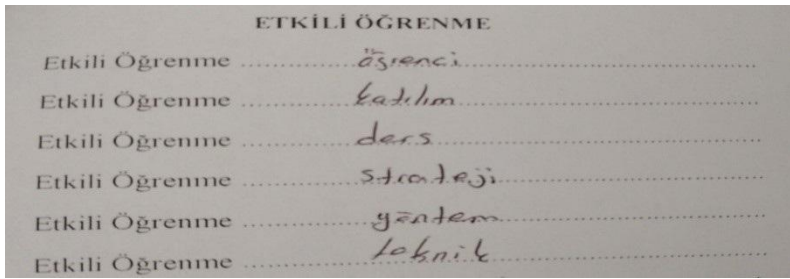 ETKİLİ ÖĞRENME
Etkili Öğrenme ............ öğrenci ............
Etkili Öğrenme ............ katılım ............
Etkili Öğrenme ............ ders ............
Etkili Öğrenme ............ strateji ............
Etkili Öğrenme ............ yöntem ............
Etkili Öğrenme ............ teknik ............